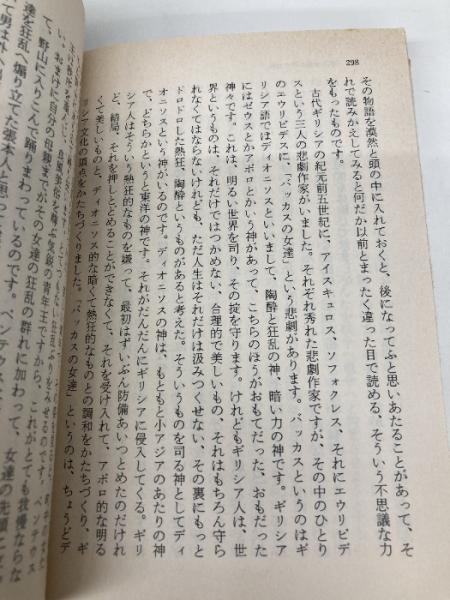 298
その物語を漠然と頭の中に入れておくと、後になってふと思いあたることがあって、そ
れで読みかえしてみると何だか以前とまったく違った目で読める、そういう不思議な力
をもったものです。
古代ギリシアの紀元前五世紀に、アイスキュロス、ソフォクレス、それにエウリピデ
スという三人の悲劇作家がいました。それぞれ秀れた悲劇作家ですが、その中のひとり
のエウリピデスに、「バッカスの女達」という悲劇があります。バッカスというのはギ
リシア語ではディオニソスといいまして、陶酔と狂乱の神、暗い力の神です。ギリシア
にはゼウスとかアポロとかいう神があって、こちらのほうがおもてだった、おもだった
神々です。これは、明るい世界を司り、その掟を守ります。けれどもギリシア人は、世
界というものは、それだけではつかめない、合理的で美しいもの、それはもちろん守ら
れなくてはならないけれども、ただ人生はそれだけでは汲みつくせない、その裏にもっと
ドロドロした熱狂、陶酔というものがあると考えた。そういうものを司る神としてディ
オニソスという神がいるのです。ディオニソスの神は、もともと小アジアのあたりの神
で、どちらかというと東洋の神です。それがだんだんにギリシアに侵入してくる。ギリ
シア人はそういう熱狂的なものを嫌って、最初はずいぶん防備あいつとめたのだけれ
ど、結局、それを押しとどめることができなくて、それを受け入れて、アポロ的な明る
く美しいものと、ディオニソス的な暗くて熱狂的なものとの調和をかたちづくり、ギ
リシア文化の頂点をかたちづくりました。「バッカスの女達」というのは、ちょうどデ
い。おまけに自分の母親までがその女達の狂乱の群れに加わって、女達の先頭に
野山に入りこんで踊りまわっているのです。
達を狂乱へ煽り立てた張本人と思って